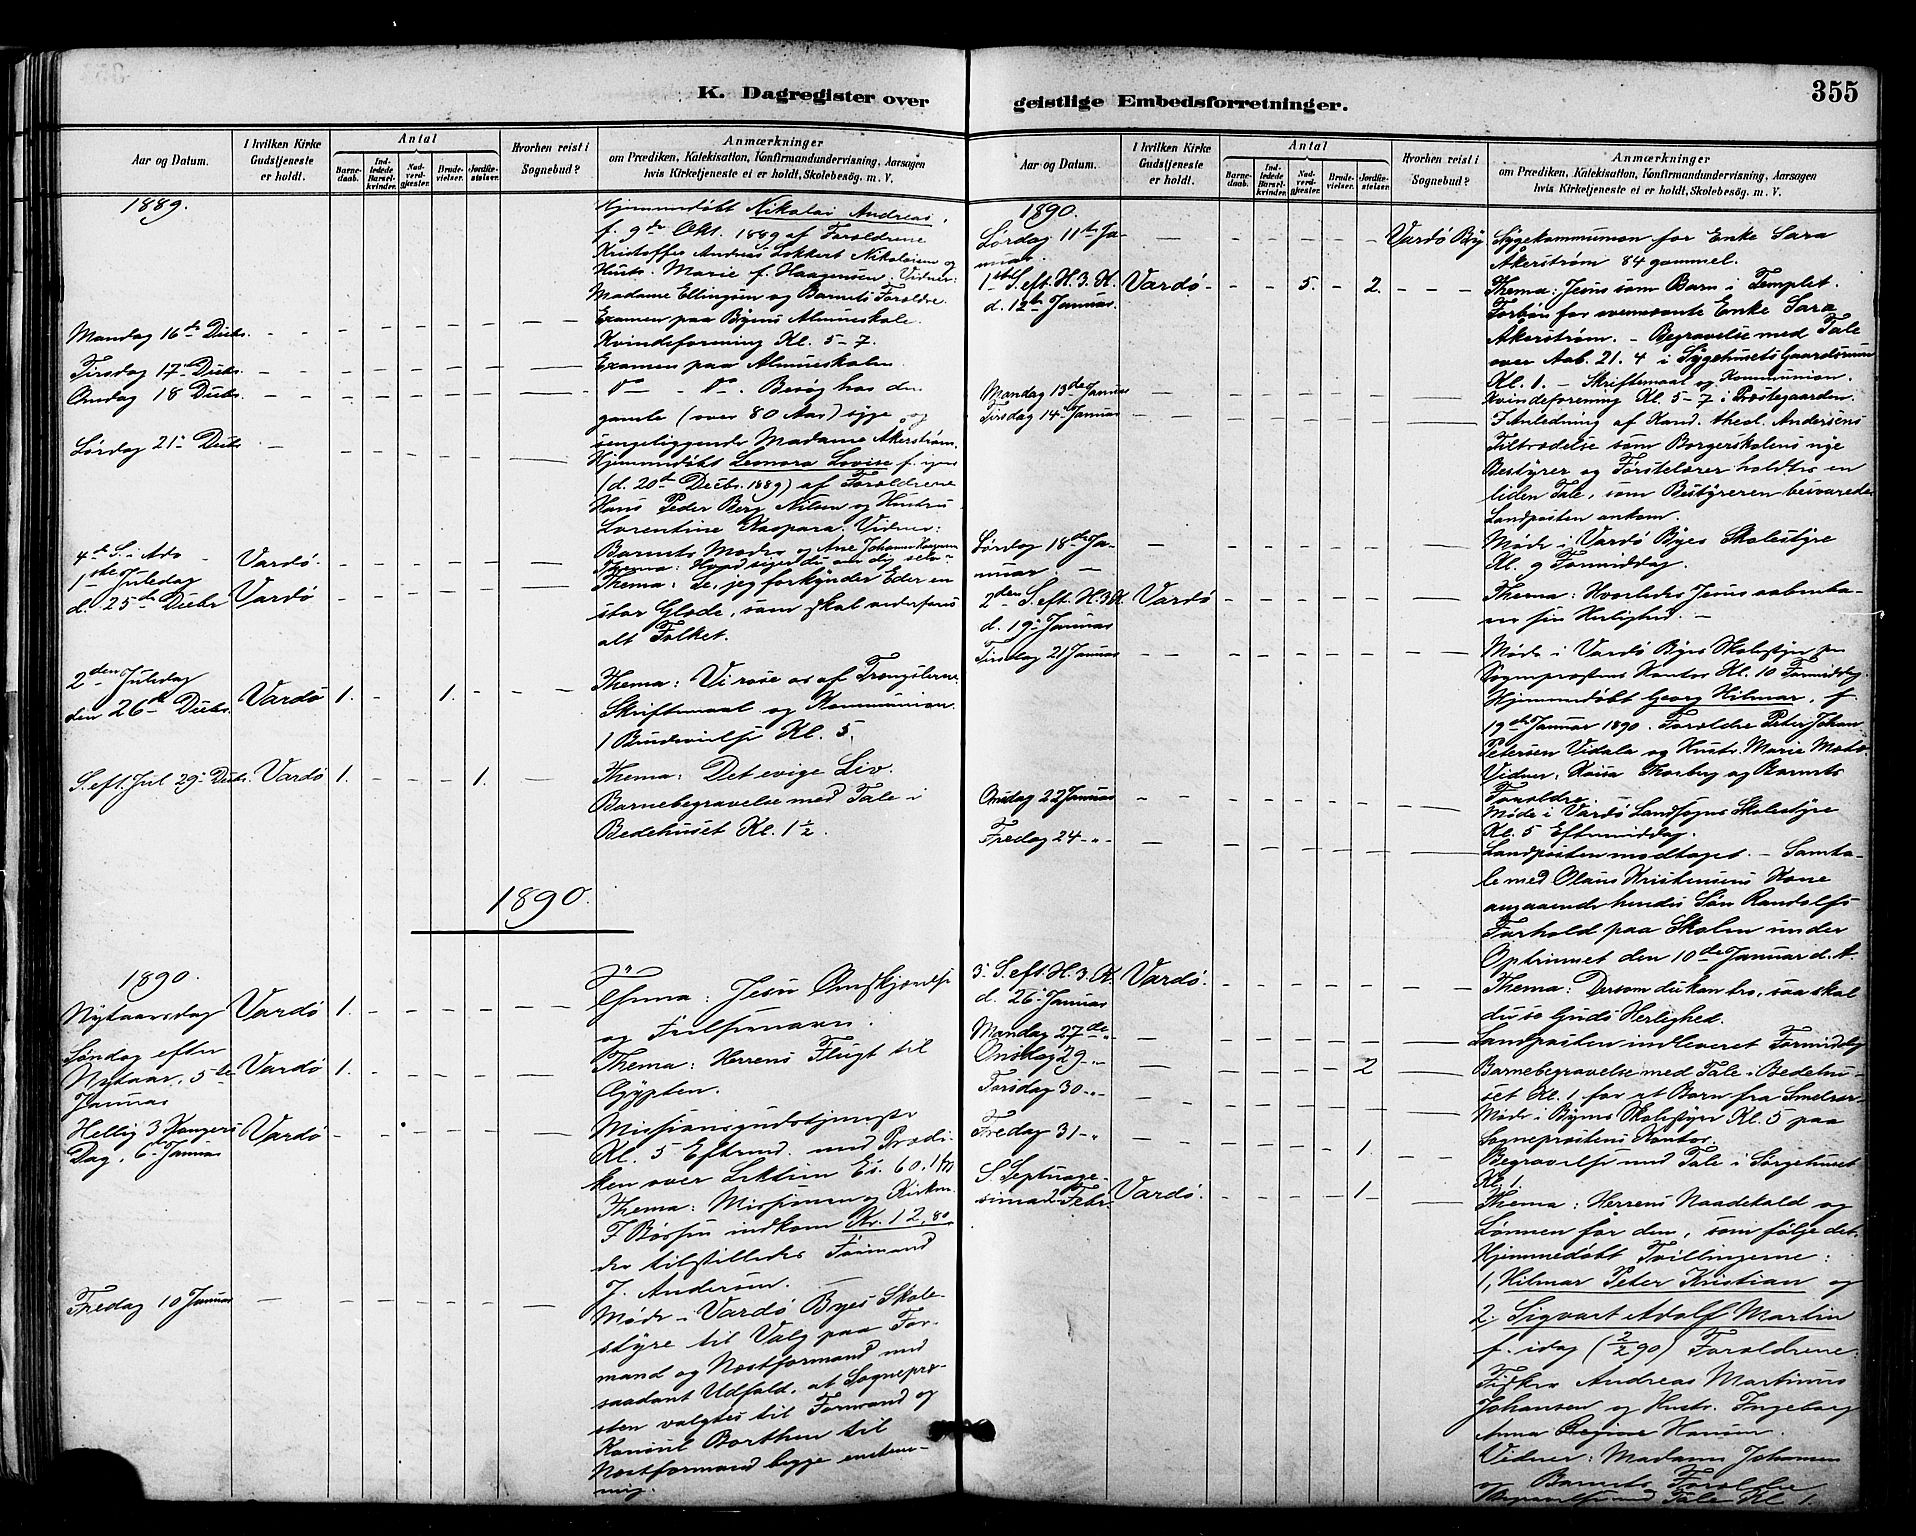 355
K. Dagregister over geistlige Embedsforretninger.
Aar og Datum.
I hvilken Kirke Gudstjeneste er holdt.
Antal
Barne-daab.
Ind-ledede Barsel-kvinder.
Nad-verd-gjester.
Brude-vielser.
Jordfæ-stelser.
Hvorhen reist i Sognebud?
Anmærkninger
om Prædiken, Katekisation, Konfirmandundervisning, Aarsagen
hvis Kirketjeneste ei er holdt, Skolebesøg. m. V.
1889.
Hjemmedøbt Nikolai Andreas,
f. 9de Okt. 1889 af Forældrene
Kristoffer Andreas Lokkert Nikolaisen og
Hustr. Marie f. Haagensen. Vidner:
Madame Ellingsen og Barnets Forældre.
Mandag 16de Decbr. - - - - - - - Examen paa Byens Almueskole.
Kvindeforening Kl. 5-7.
Tirsdag 17de Decbr. - - - - - - - Examen paa Almueskolen.
Onsdag 18 Decbr. - - - - - - - Do - Do. Besøg hos den
gamle (over 80 Aar) syge og
sengeliggende Madame Åkerstrøm.
Lørdag 21de Decbr. - - - - - - - Hjemmedøbt Leonora Lovise f. igaar
(d. 20de Decbr. 1889) af Forældrene
Hans Peder Berg Nilsen og Hustru
Lorentine Kaspara. Vidner:
Barnets Moder og Ane Johanne
4de S. i Adv. - Vardø. - - - - - - Thema: Hvad siger du om dig selv
1ste Juledag
d. 25de Decbr Vardø - - - - - - Thema: Se, jeg forkynder Eder en
stor Glæde, som skal vederfares
alt Folket.
2den Juledag
den 26de Decbr. Vardø 1. - - 1. - - Thema: Vi rose os af Trængslerne.
Skriftemaal og Kommunion.
1 Brudevielse Kl. 5.
S. eft. Jul 29de Decbr. Vardø 1. - - - 1. - Thema: Det evige Liv.
Barnebegravelse med Tale i
Bedehuset Kl. 1½.
1890.
1890.
Nytaarsdag Vardø 1. - - - - - Thema: Jesu Omskjærelse
og Frelsernavn.
Søndag efter
Nytaar, 5te
Januar Vardø 1. - - - - - Thema: Herrens Flugt til
Ægypten.
Hellig 3 Kongers
Dag, 6te Januar Vardø - - - - - - Missionsgudstjeneste
Kl. 5 Eftermd. med Prædi-
ken over Lektien Es. 60, 1 fm
Thema: Missionen og Kirken.
I Bøssen indkom Kr. 12,80
der tilstilledes Formand
J. Andersen.
Fredag 10 Januar - - - - - - - Møde i Vardø Byes Skole-
styre til Valg paa For-
mand og Næstformand med
saadant Udfald, at Sognepræ-
sten valgtes til Formand og
Konsul Borthen til
Næstformand begge enstem-
mig.
K. Dagregister over geistlige Embedsforretninger.
Aar og Datum.
I hvilken Kirke Gudstjeneste er holdt.
Antal
Barne-daab.
Ind-ledede Barsel-kvinder.
Nad-verd-gjester.
Brude-vielser.
Jordfæ-stelser.
Hvorhen reist i Sognebud?
Anmærkninger
om Prædiken, Katekisation, Konfirmandundervisning, Aarsagen
hvis Kirketjeneste ei er holdt, Skolebesøg. m. V.
1890.
Lørdag 11te Ja-
nuar. - - - - - - Vardø By Sygekommunion for Enke Sara
Åkerstrøm 84 gammel.
1ste S. eft. H. 3. K.
d. 12te Januar. Vardø. - - 5. - 2. - - Thema: Jesus som Barn i Templet.
Forbøn for ovennævnte Enke Sara
Åkerstrøm. - Begravelse med Tale
over Aab. 21. 4 i Sygehusets Gaardsrum
Kl. 1. - Skriftemaal og Kommunion.
Mandag 13de Januar - - - - - - - Kvindeforening Kl. 5-7 i Præstegaarden.
Tirsdag 14de Januar - - - - - - - I Anledning af Kand. theol. Andersens
Tiltrædelse som Borgerskolens nye
Bestyrer og Førstelærer holdtes en
liden Tale, som Bestyreren besvarede.
Landposten ankom.
Lørdag 18de Ja-
nuar. - - - - - - - Møde i Vardø Byes Skolestyre
Kl. 9 Formiddag.
2den S. eft. H. 3 K.
d. 19de Januar Vardø - - - - - - Thema: Hvorledes Jesus aabenba-
rer sin Herlighed. -
Tirsdag 21 Januar - - - - - - - Møde i Vardø Byes Skolestyre paa
Sognepræstens Kontor Kl. 10 Formiddag.
Hjemmedøbt Georg Hilmar, f.
19de Januar 1890. Forældre Peter Johan
Petersen Vidala og Hustr. Marie
Vidner: Kaisa Thorberg og Barnets
Forældre.
Onsdag 22 Januar - - - - - - - Møde i Vardø Landsogns Skolestyre
Kl. 5 Eftermiddag.
Fredag 24 - " - - - - - - - Landposten modtaget. - Samta-
le med Olaus Kristensens Kone
angaaende hendes Søn Randolfs
Forhold paa Skolen under
Optrinnet den 10de Januar d. A.
3. S. eft. H. 3. K.
d. 26. Januar Vardø. - - - - - - Thema: Dersom du kan tro, saa skal
du se Guds Herlighed.
Mandag 27de " - - - - - - - Landposten indleveret Formiddag
Onsdag 29 - " - - - - - 2 - Barnebegravelse med Tale i Bedehu-
set Kl. 1 for et Barn fra
Torsdag 30 - " - - - - - - - Møde i Byens Skolestyre Kl. 5 paa
Sognepræstens Kontor.
Fredag 31 - " - - - - - 1. - Begravelse med Tale i Sørgehuset
Kl. 1.
S. Septuage-
sima 2 Febr. Vardø. - - - - 1 - Thema: Herrens Naadekald og
Lønnen for den, som følge det.
Hjemmedøbt Tvillingerne:
1, Hilmar Peter Kristian og
2. Sigvart Adolf Martin
f. idag (2/2 90) Forældrene:
Fisker Andreas Martinus
Johansen og Hustr. Ingeborg
Anna Regine
Vidner: Madame Johansen
og Barnets Forældre
Begravelse med Tale Kl. 1.